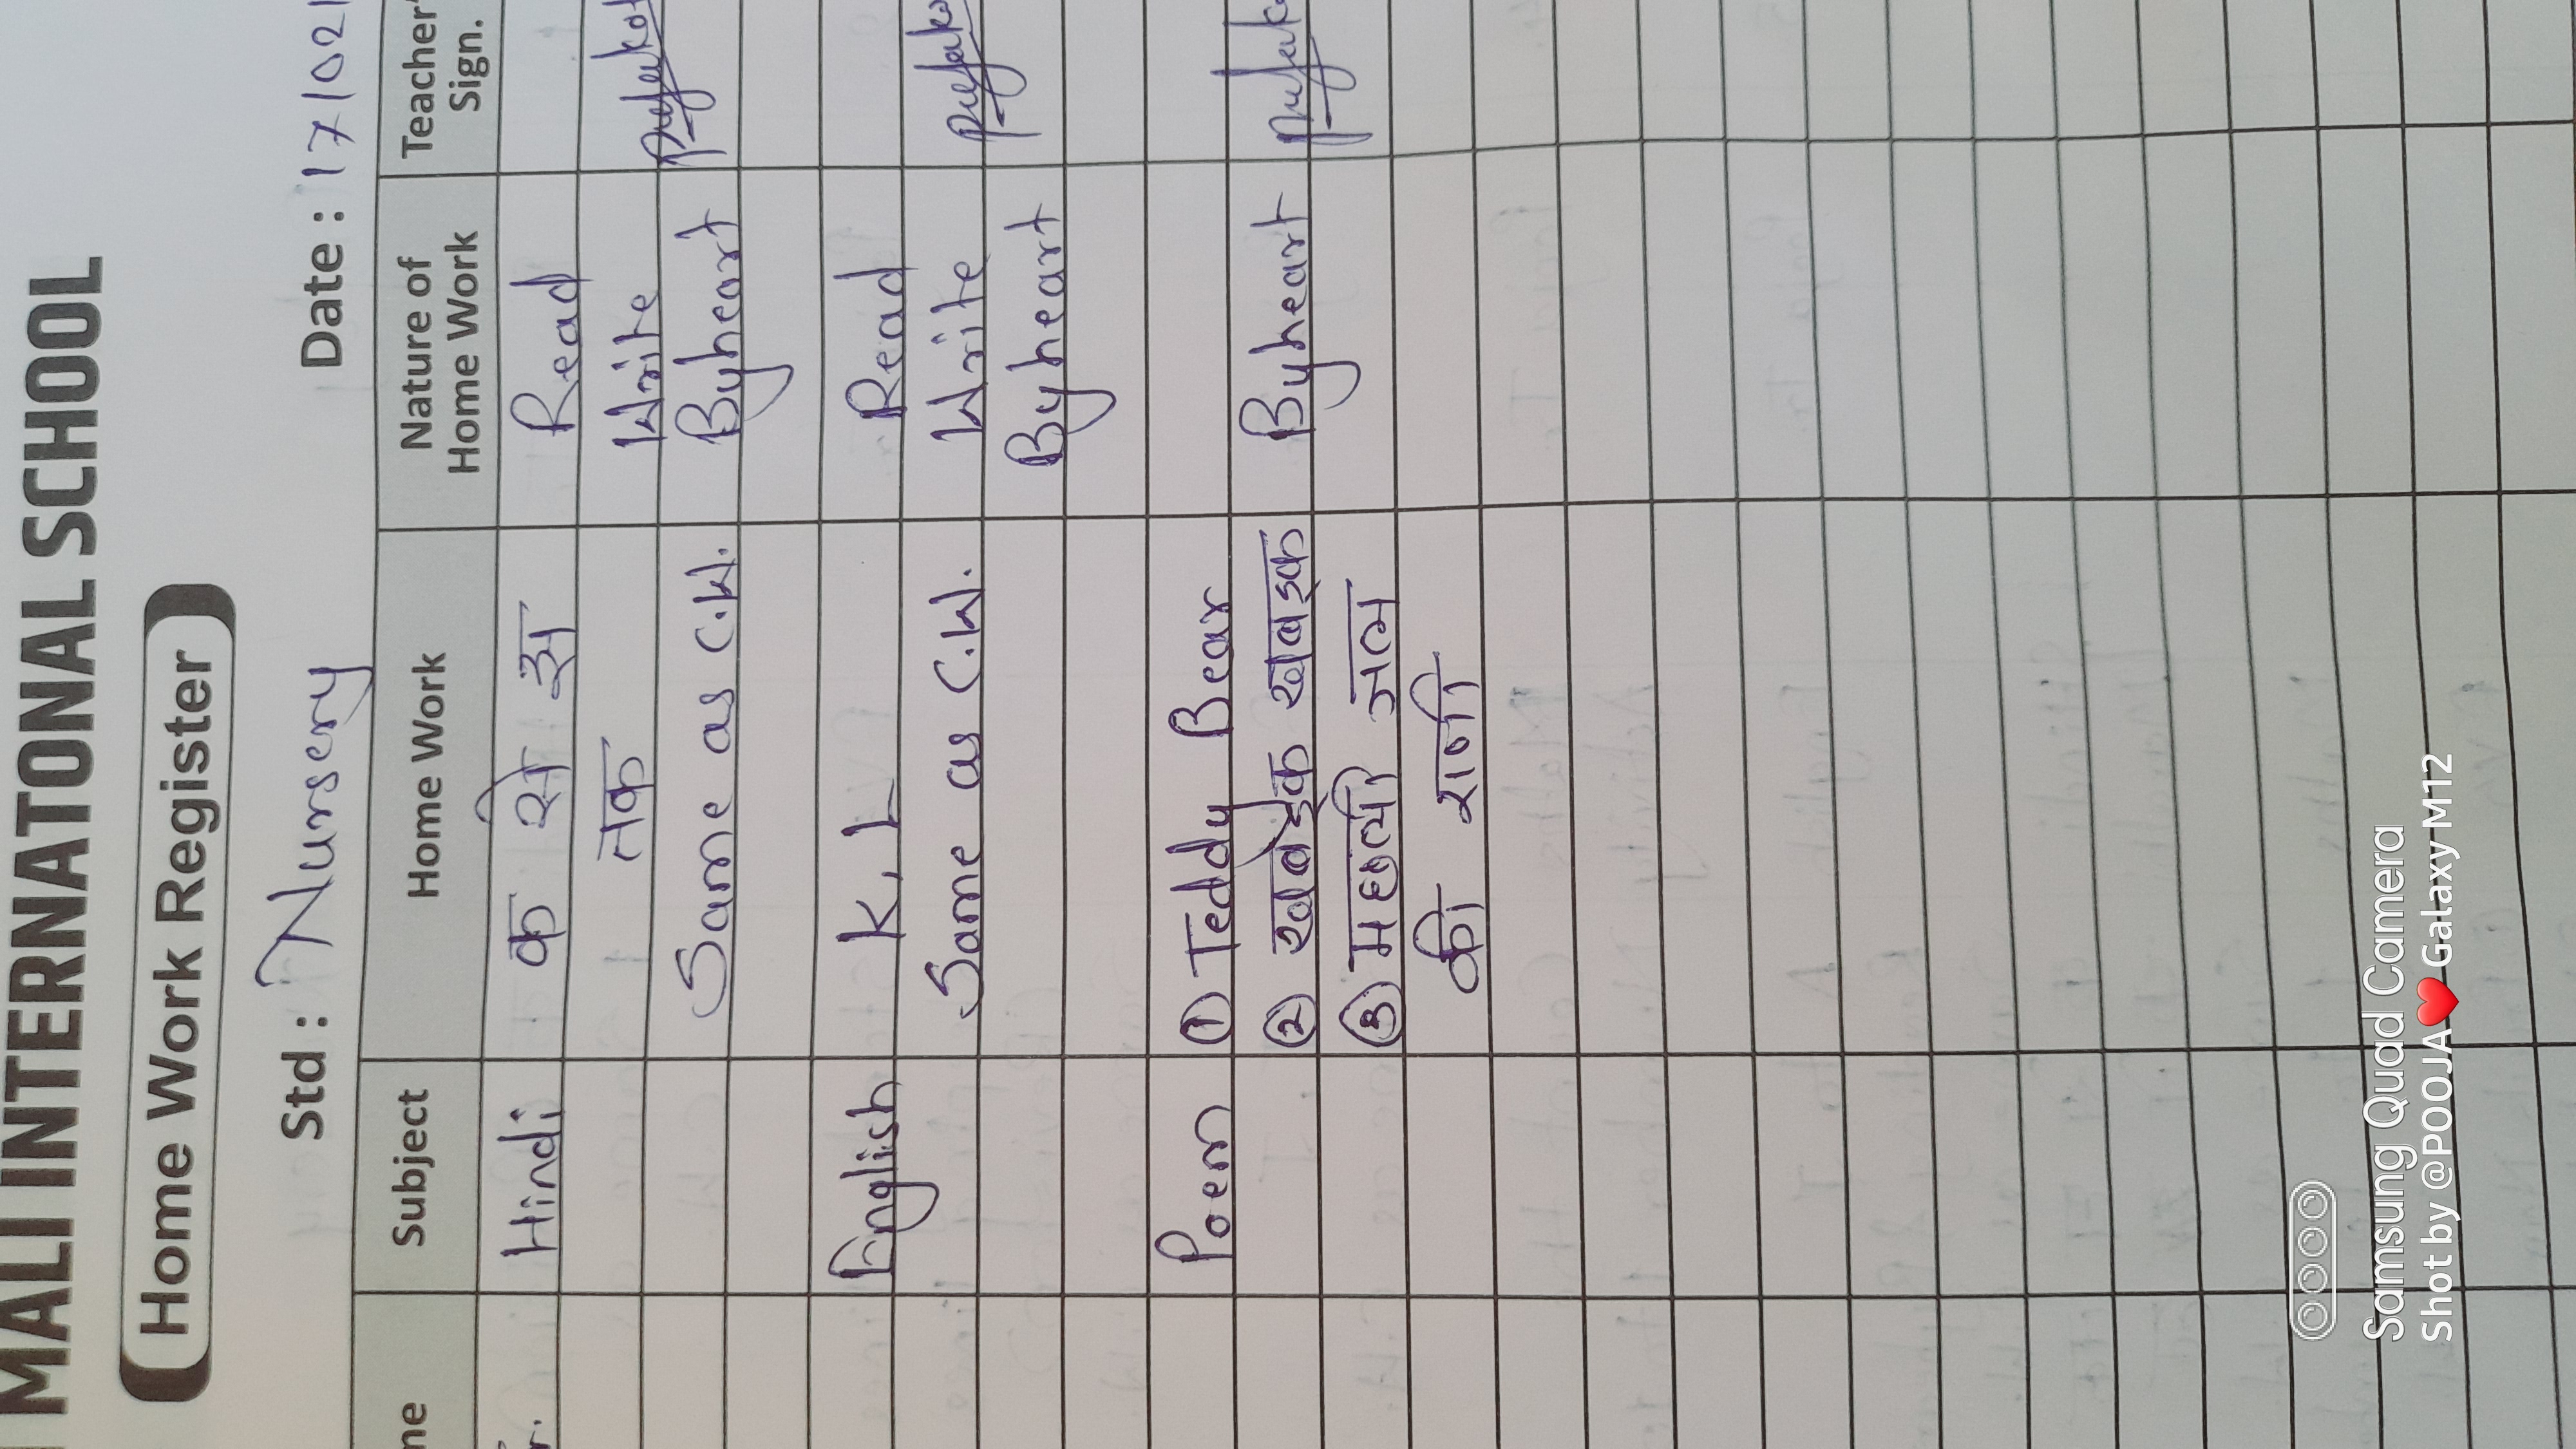 MALI INTERNATONAL SCHOOL
Home Work Register
Std : Nursery Date : 17/02/
Subject Home Work Nature of Home Work Teacher's Sign.
Hindi क से ज्ञ Read
तक Write
Same as C.W. Byheart
English K, L Read
Same as C.W. Write
Byheart
Poem ① Teddy Bear
② खबड़क खबड़क Byheart
③ मछली जल
की रानी
Samsung Quad Camera
Shot by @POOJA❤️Galaxy M12